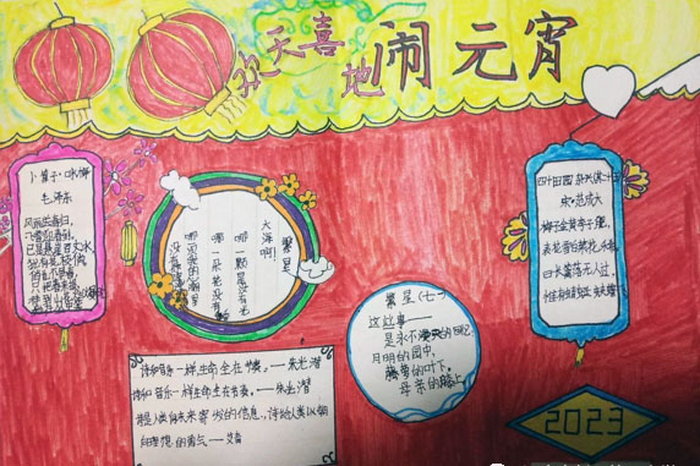 欢天喜地闹元宵
卜算子·咏梅
毛泽东
风雨送春归,
飞雪迎春到,
已是悬崖百丈冰
犹有花枝俏
俏也不争春,
只把春来报,
繁星
大海啊!
哪一颗星没有光
哪一朵花没有
哪一次我的
没有
繁星(七一)
这些事——
是永不漫灭的回忆:
月明的园中,
藤萝的叶下,
母亲的膝上
四时田园杂兴(其二十五
宋·范成大
梅子金黄杏子肥,
麦花雪白菜花
日长篱落无人过,
惟有蜻蜓
诗和音乐一样,生命全在节奏。——朱光潜
诗和音乐一样生命全在节奏。——朱光潜
诗是人类向未来寄发的信息,诗给人类以朝
向理想的勇气——艾青
2023